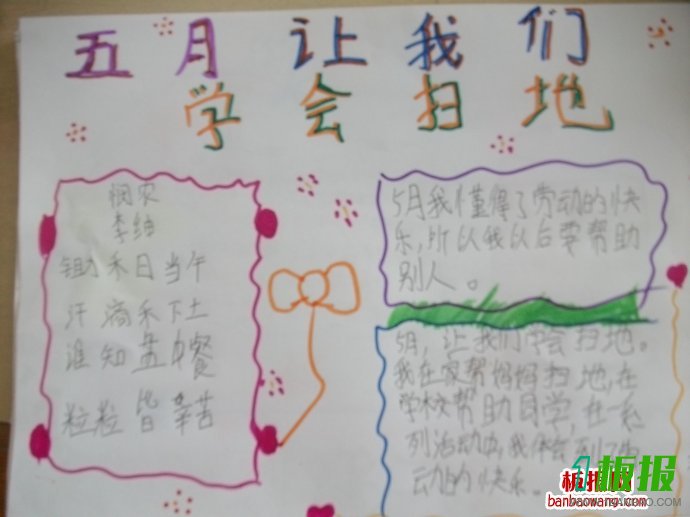 五月让我们
学会扫地
悯农
李绅
锄禾日当午
汗滴禾下土
谁知盘中餐
粒粒皆辛苦
5月我懂得了劳动的快
乐,所以我以后要帮助
别人。
5月,让我们学会扫地。
我在家帮妈妈扫地,在
学校帮助同学,在一系
列活动中,我体会到了劳
动的快乐。
板报
板报网
banbaowang.com